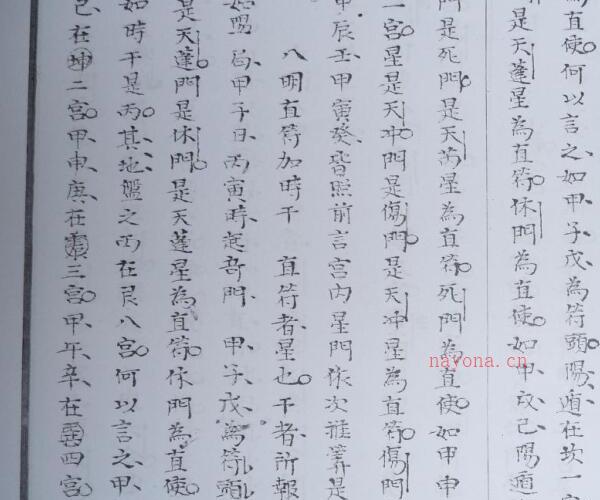 為直使何以言之如甲子戊為符頭陽遁在坎一
是天蓬星為直符休門為直使如甲戌己陽遁
門是死門是天芮星為直符死門為直使如甲申
一宮星是天冲門是傷門是天冲星為直符傷門
甲辰壬甲寅癸皆照前言宮内星門依次推算是
八明直符加時干 直符者星也干者所報
如陽局甲子日丙寅時起奇門甲子戊為符頭
是天蓬門是休門是天蓬星為直符休門為直使
如時干是丙其地盤之丙在艮八宮何以言之甲
己在坤二宮甲申庚在震三宮甲午辛在巽四宮
nayona.cn